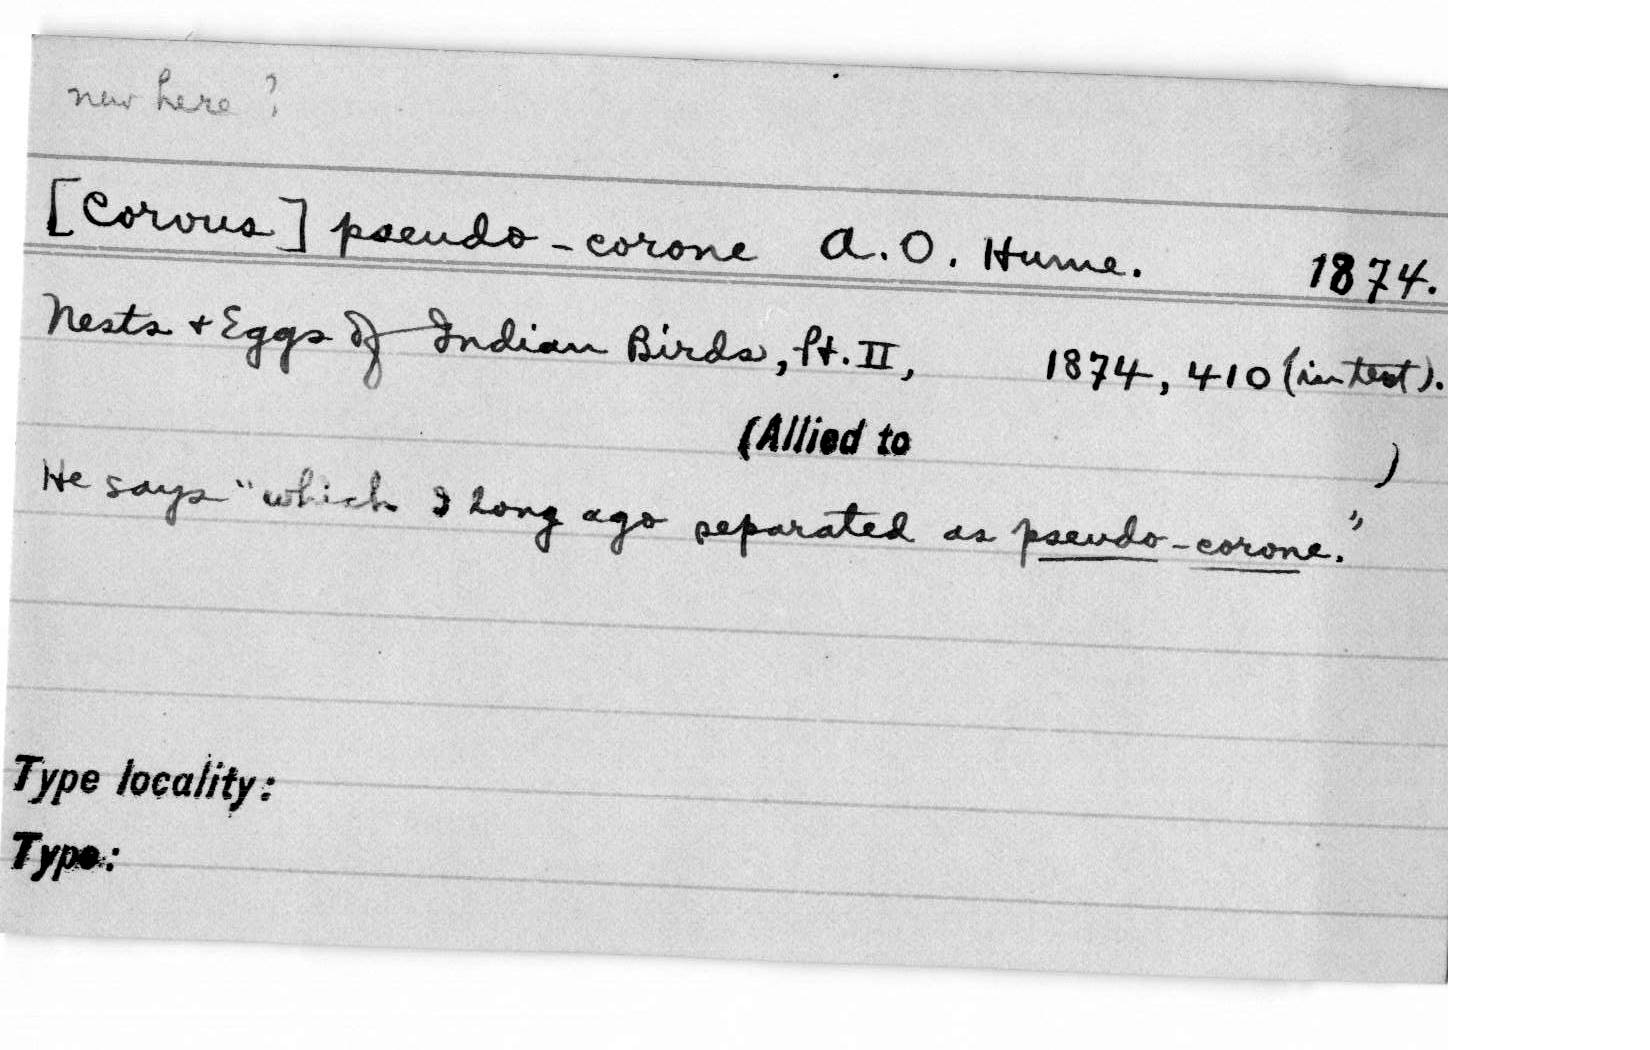 new here ?
[Corvus] pseudo-corone A. O. Hume. 1874.
Nests + Eggs of Indian Birds, Pt. II, 1874, 410 (in text).
(Allied to )
He says "which I long ago separated as pseudo-corone."
Type locality:
Type: